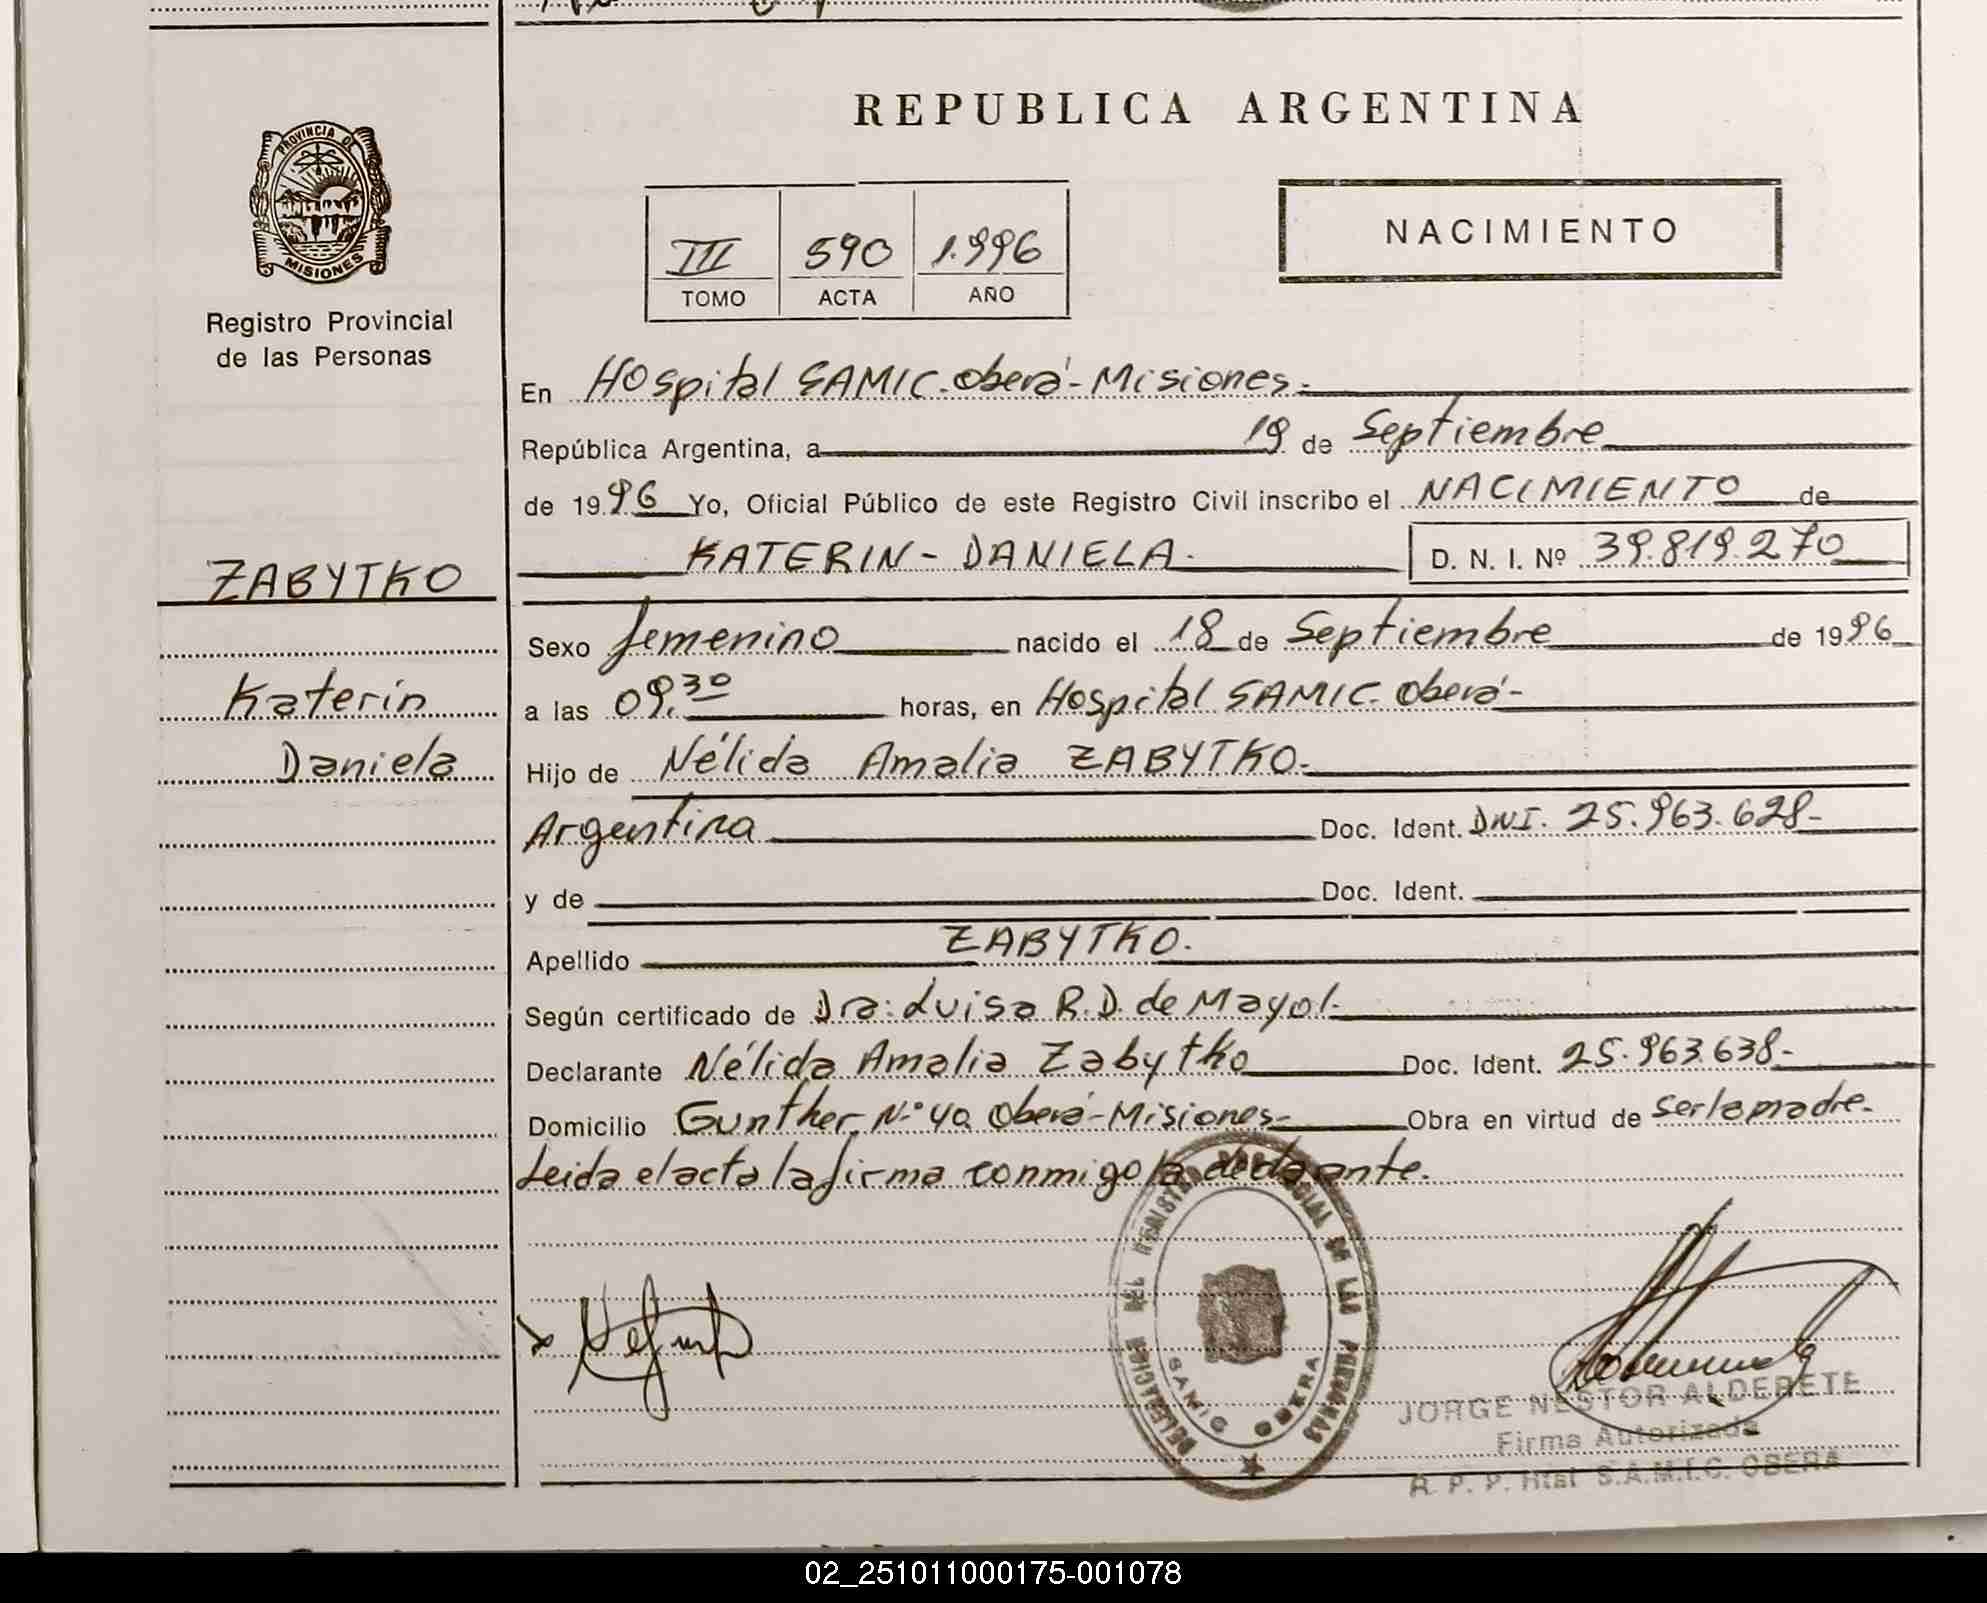 REPUBLICA ARGENTINA
PROVINCIA DE
MISIONES
Registro Provincial
de las Personas
III 590 1.996
TOMO ACTA AÑO
NACIMIENTO
En Hospital SAMIC. Oberá - Misiones.
República Argentina, a 19 de Septiembre
de 1996 Yo, Oficial Público de este Registro Civil inscribo el NACIMIENTO de
KATERIN - DANIELA. D. N. I. Nº 39.819.270
ZABYTKO
Katerin
Daniela
Sexo femenino nacido el 18 de Septiembre de 1996
a las 09.30 horas, en Hospital SAMIC. Oberá -
Hijo de Nélida Amalia ZABYTKO.
Argentina Doc. Ident. DNI. 25.963.628-
y de Doc. Ident.
Apellido ZABYTKO.
Según certificado de Dra: Luisa R.D. de Mayol.
Declarante Nélida Amalia Zabytko Doc. Ident. 25.963.638-
Domicilio Gunther N.º 40 Oberá - Misiones - Obra en virtud de ser la madre.
Leida el acta la firma conmigo la declarante.
DELEGACION DEL REGISTRO PROVINCIAL DE LAS PERSONAS
SAMIC OBERA
JORGE NESTOR ALDERETE
Firma Autorizada
R. P. P. Htal S.A.M.I.C. OBERA
02_251011000175-001078